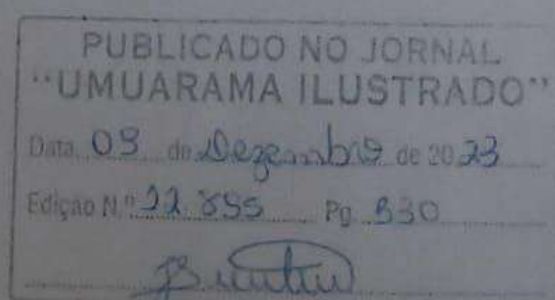 PUBLICADO NO JORNAL
"UMUARAMA ILUSTRADO"
Data, 09 de Dezembro de 2023
Edição N.º 22.855 Pg. B30